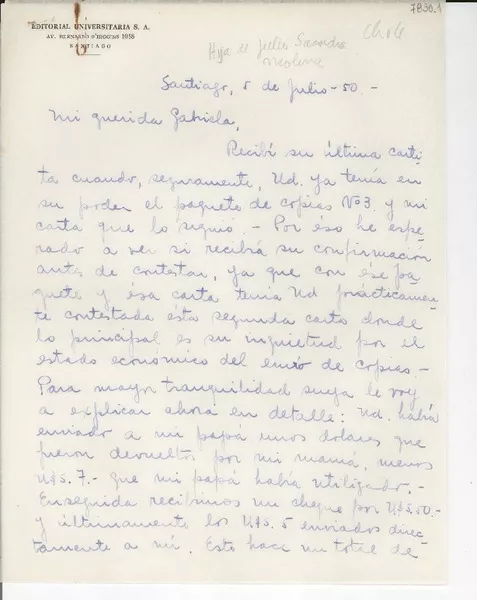 7830.1
EDITORIAL UNIVERSITARIA S. A.
AV. BERNARDO O'HIGGINS 1058
SANTIAGO
Chile
Hija de Julio Saavedra
Molina
Santiago, 5 de Julio-50.-
Mi querida Gabriela,
Recibí su última carti-
ta cuando, seguramente, Ud. ya tenía en
su poder el paquete de copias Nº3. y mi
carta que lo siguió.- Por éso he espe-
rado a ver si recibía su confirmación
antes de contestar, ya que con ése pa-
quete y ésa carta tenía Ud prácticamen-
te contestada esta segunda carta donde
lo principal es su inquietud por el
estado económico del envío de copias.-
Para mayor tranquilidad suya le voy
a explicar ahora en detalle: Ud. había
enviado a mi papá unos dolares que
fueron devueltos por mi mamá, menos
U$S. 7.- que mi papá había utilizado.-
Enseguida recibimos un cheque por U$S.50.-
y últimamente los U$S. 5 enviados direc-
tamente a mí. Esto hace un total de